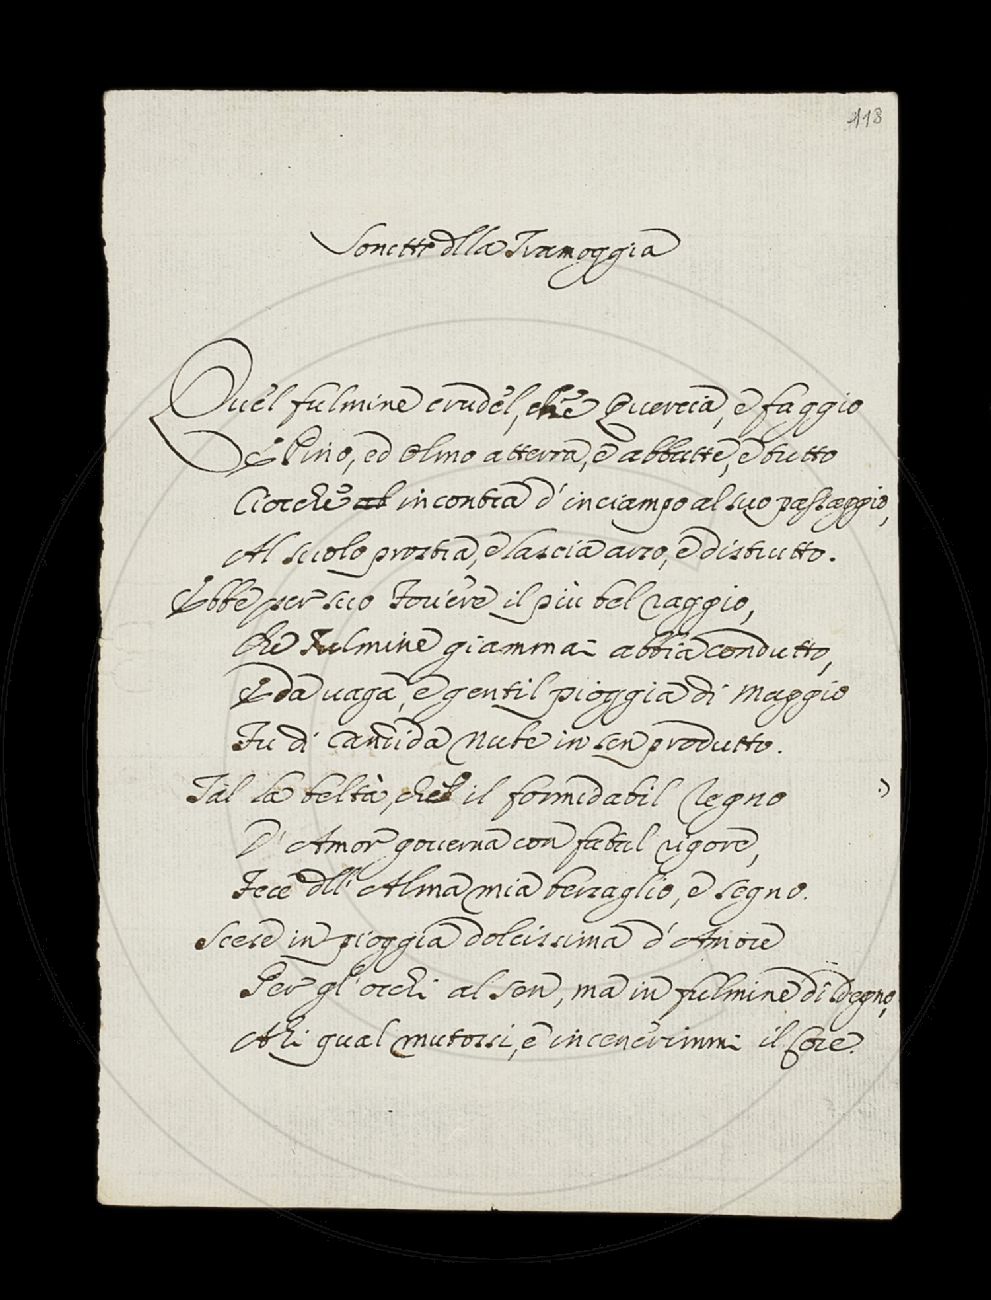 118
Sonetto della Tramoggia
Quel fulmine crudel, che Quercia, e faggio
E Pino, ed Olmo atterra, e abbatte, e tutto
Ciocchè incontra d'inciampo al suo passaggio,
Al suolo prostra, e lascia arso, e distrutto.
Ebbe per suo Foriere il più bel raggio,
Che Fulmine giammai abbia condutto,
E da vaga, e gentil pioggia di Maggio
Fu di Candida Nube in sen produtto.
Tal la beltà, che il formidabil Regno
D'Amor governa con fatal rigore,
Fece dell'Alma mia berzaglio, e segno.
Scese in pioggia dolcissima d'Amore
Per gl'occhi al sen, ma in fulmine di sdegno,
Ahi qual mutossi, e incenerimmi il Core.